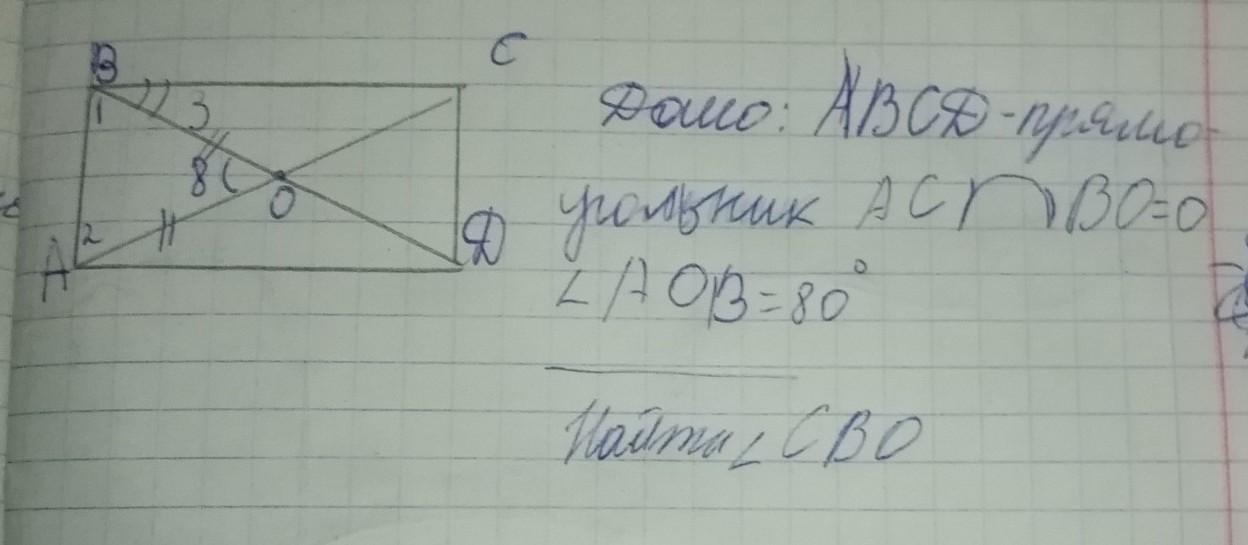 B
C
1
3
8
O
2
A
D
Дано: ABCD-прямо
угольник AC∩BO=O
∠AOB=80°
Найти ∠CBO